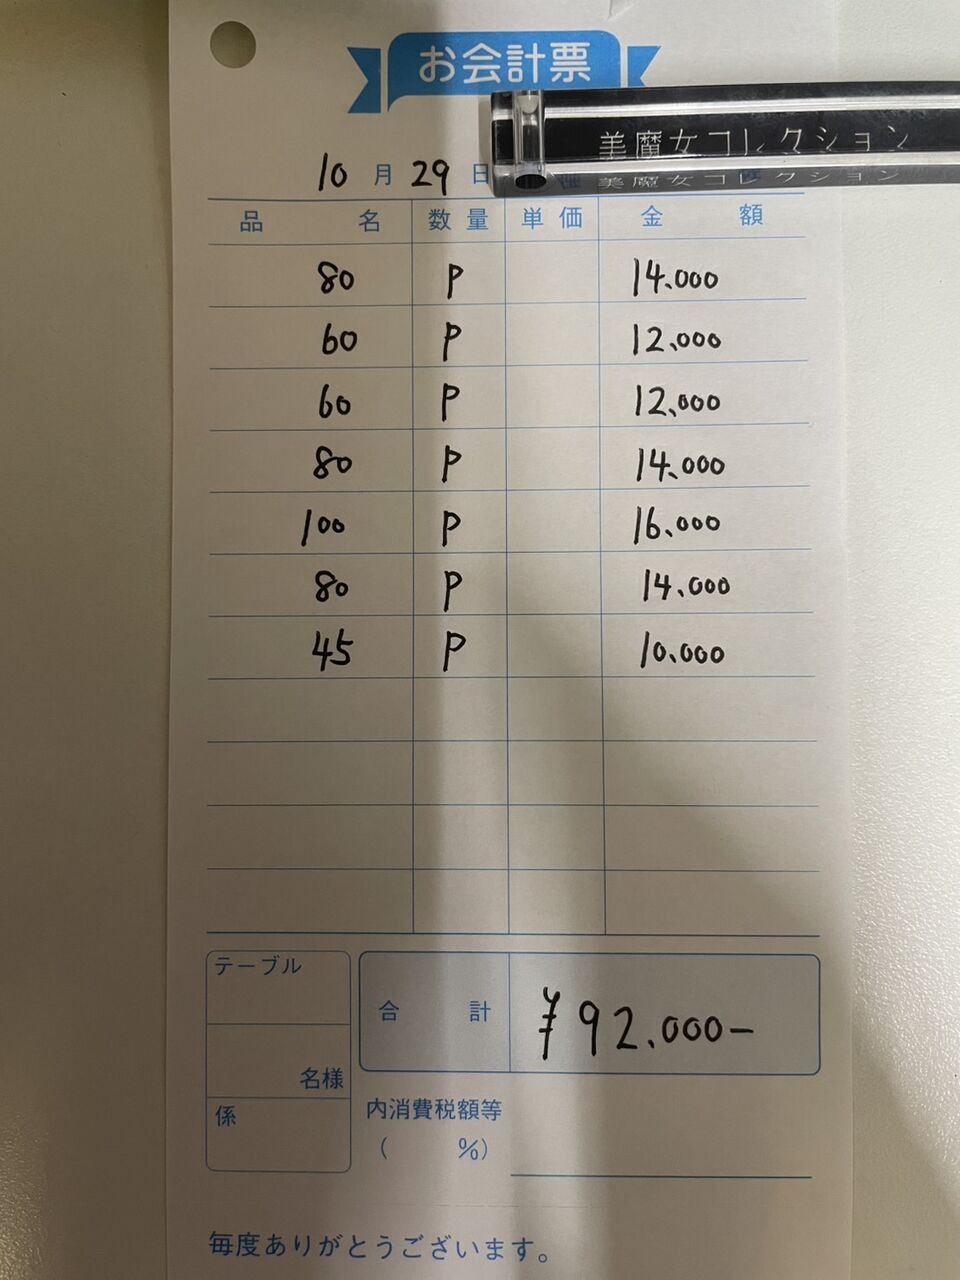 お会計票
美魔女コレクション
美魔女コレクション
10月29日
品名 数量 単価 金額
80 P 14.000
60 P 12.000
60 P 12.000
80 P 14.000
100 P 16.000
80 P 14.000
45 P 10.000
テーブル
合計 ¥92.000-
名様
係
内消費税額等
( %)
毎度ありがとうございます。